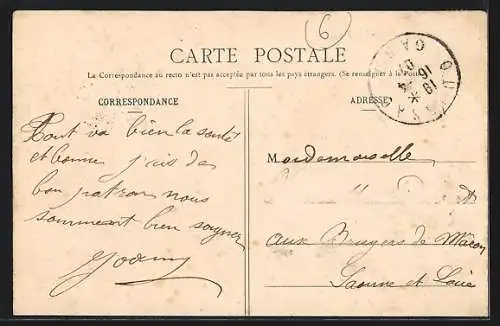 6
CARTE POSTALE
La Correspondance au recto n'est pas acceptée par tous les pays étrangers. (Se renseigner à la Poste)
CORRESPONDANCE
ADRESSE
Tout va bien la santé
et bonne j'ais de
bon patron nous
sommest bien soigner
Mademoiselle
"
aux Bruyers de Mâcon
Saonne et Loire